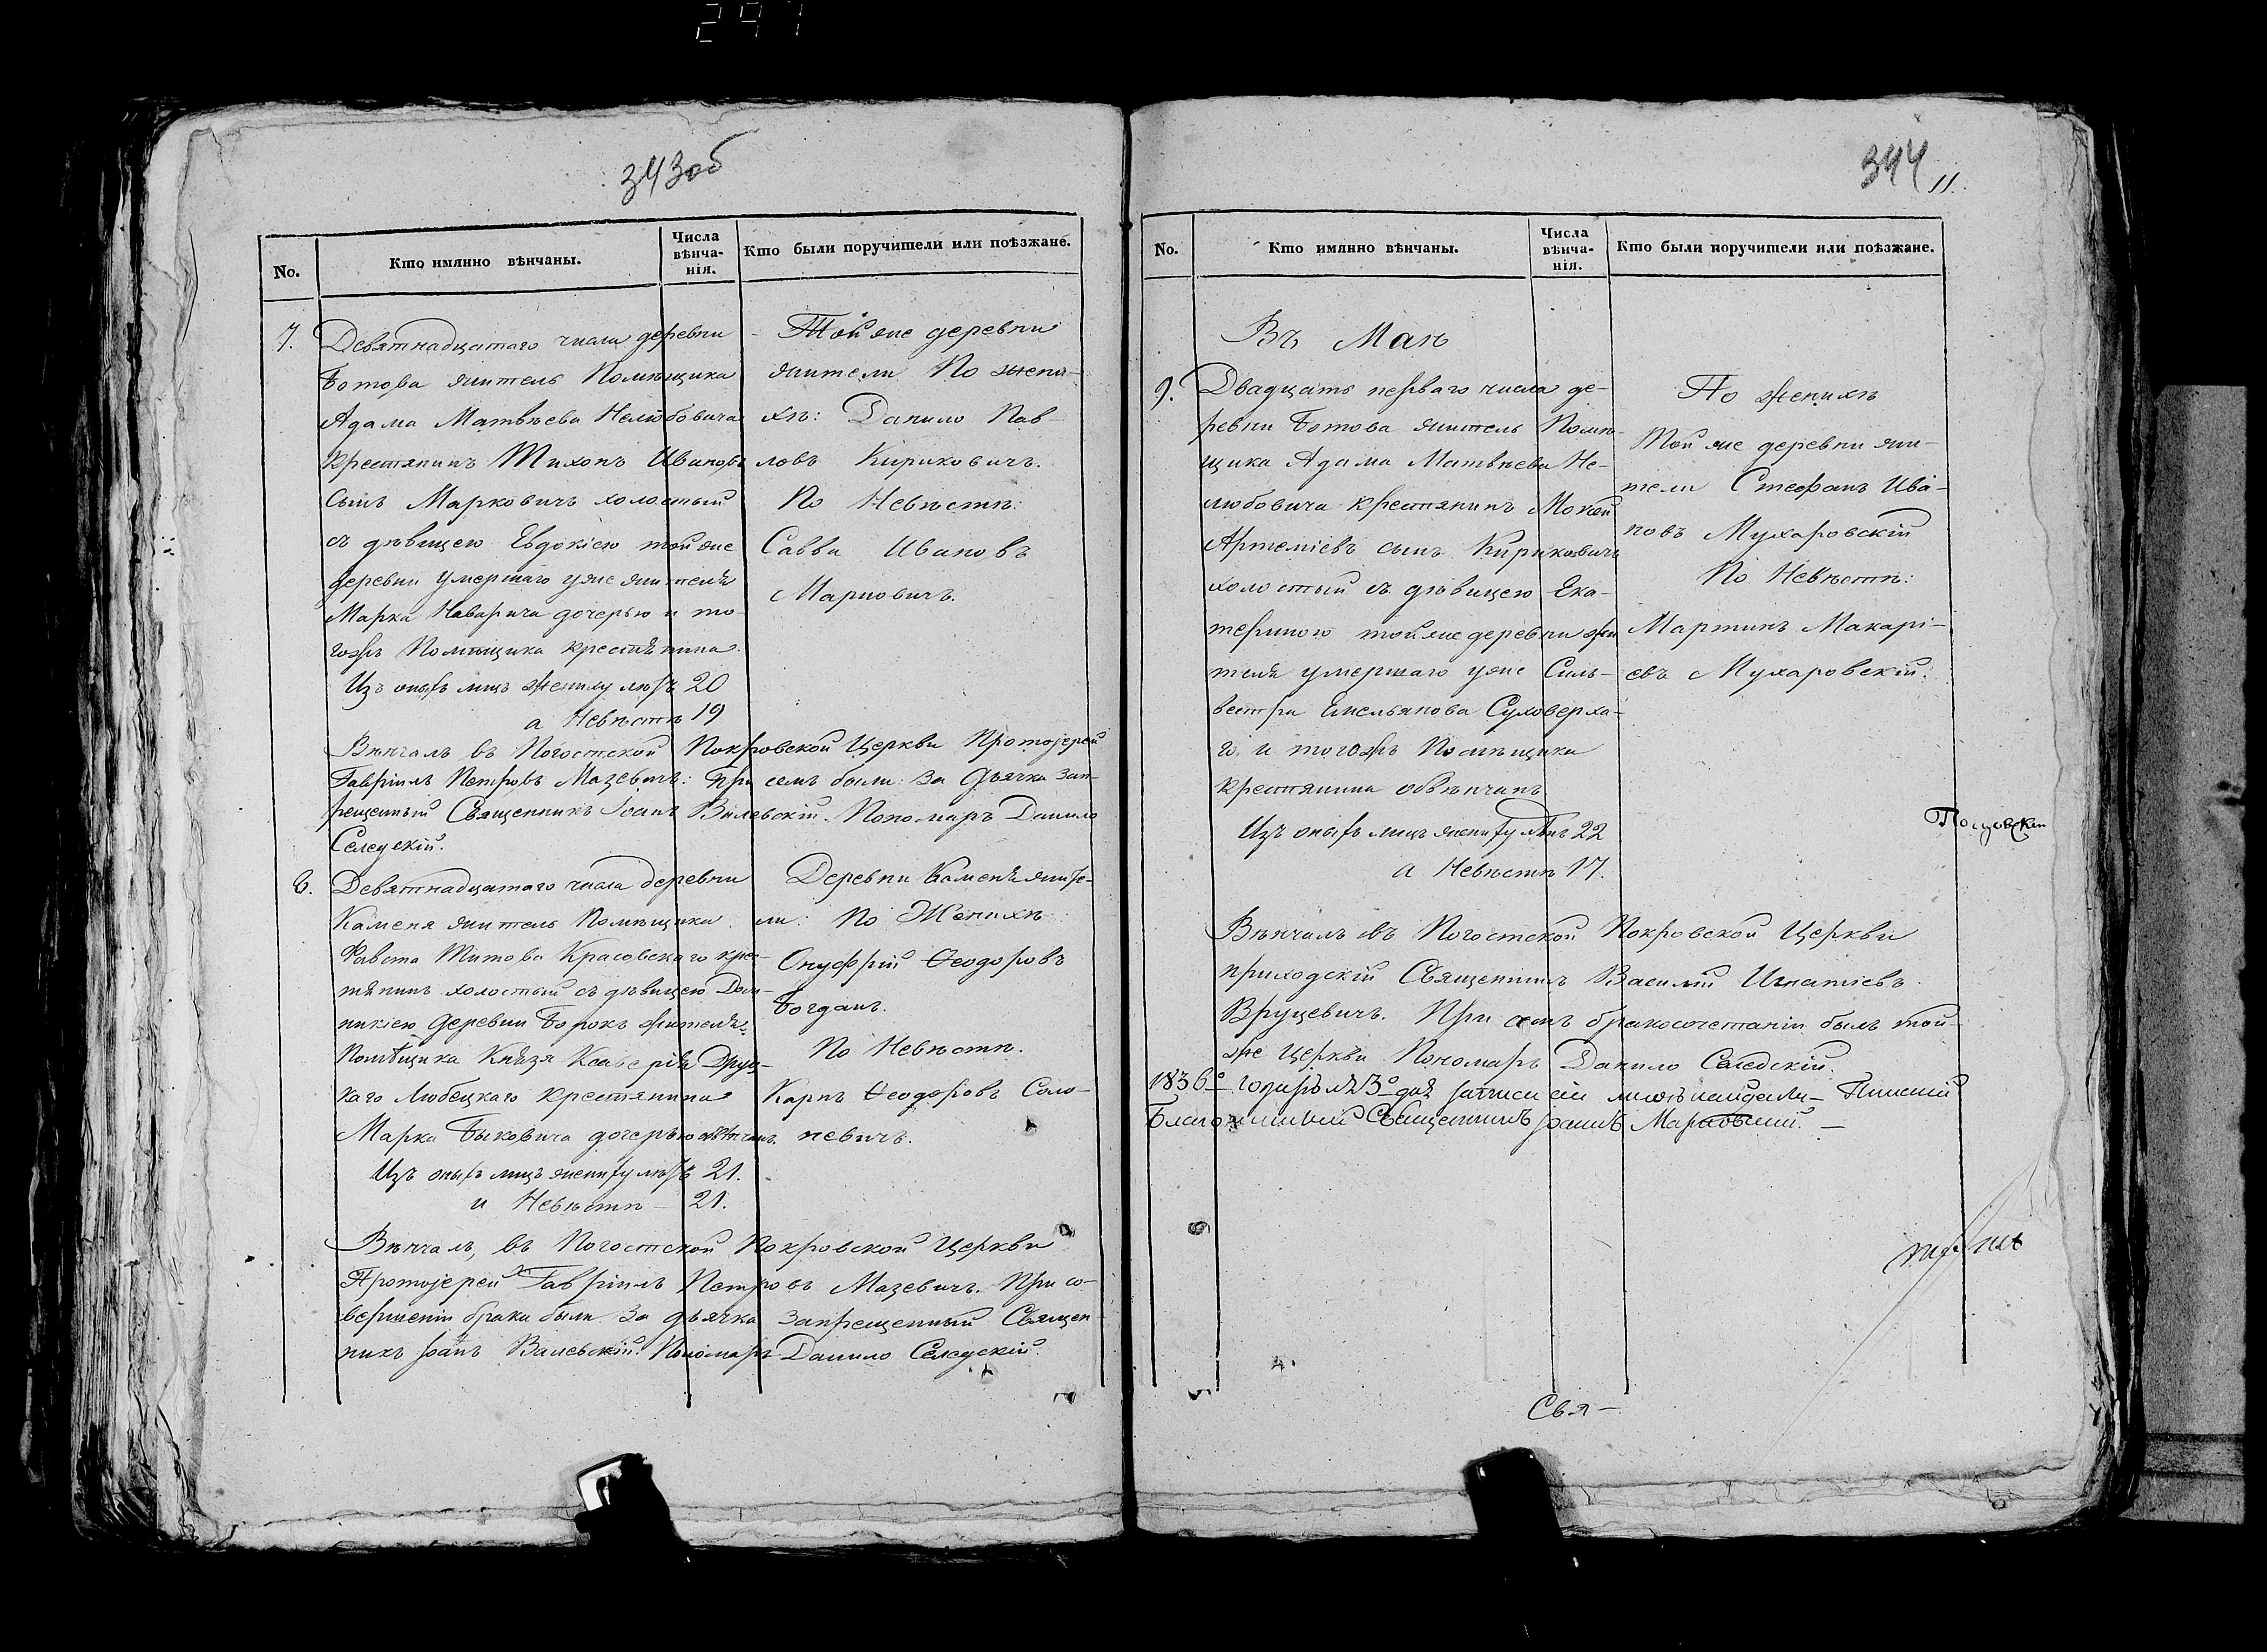 297
343об
No.
Кто имянно вѣнчаны.
Числа вѣнча-нія.
Кто были поручители или поѣзжане.
7.
Девятнадцатаго числа деревни
Ботова житель Помѣщика
Адама Матвѣева Нелюбовича
крестянинъ Тихонъ Ивановъ
сынъ Марковичъ холостый
съ дѣвицею Евдокіею тойже
деревни умершаго уже жителя
Марка Наварича дочерью и то-
гожъ Помѣщика крестянина.
Изъ оныхъ лицъ жениху лѣтъ 20
а Невѣстѣ 19
- Той же деревни
жители По жени-
хѣ: Данило Пав-
ловъ Кириковичъ.
По Невѣстѣ:
Савва Ивановъ
Марковичъ.
Вѣнчалъ въ Погостской Покровской Церкви Протоіерей
Гавріилъ Петровъ Мазевичъ: При семъ были: За Дьячка зап-
рещенный Священникъ Іоанъ Вилевскій. Пономаръ Данило
Селедскій.
8.
Девятнадцатаго числа деревни
Каменя житель Помѣщика
Фавста Титова Красовскаго крес-
тянинъ холостый съ дѣвицею Дом-
никіею деревни Борокъ жителя
Помѣщика Князя Ксаверія Друц-
каго Любецкаго крестянина
Марка Быковича дочерью обвѣнчанъ.
Изъ оныхъ лицъ жениху лѣтъ 21.
и Невѣстѣ - 21.
Деревни Каменя жите-
ли: По Женихѣ
Онуфрій Ѳеодоровъ
Богданъ.
По Невѣстѣ.
Карпъ Ѳеодоровъ Соло-
невичъ.
Вѣнчалъ, въ Погостской Покровской Церкви
Протоіерей Гавріилъ Петровъ Мазевичъ. При со-
вершеніи брака были За дьячка запрещенный Священ-
никъ Іоанъ Валевскій. Пономаръ Данило Селедскій.
344
11.
No.
Кто имянно вѣнчаны.
Числа вѣнча-нія.
Кто были поручители или поѣзжане.
Въ Маѣ
9.
Двадцать перваго числа де-
ревни Ботова житель Помѣ-
щика Адама Матвѣева Не-
любовича крестянинъ Мокей
Артеміевъ сынъ Кириковичъ
холостый съ дѣвицею Ека-
териною тойже деревни жи-
теля умершаго уже Силь-
вестра Емельянова Суховерха-
го и тогожъ Помѣщика
крестянина обвѣнчанъ
Изъ оныхъ лицъ жениху лѣтъ 22
а Невѣстѣ 17.
По женихѣ
Той же деревни жи-
тели Стефанъ Ива-
новъ Мухаровскій
По Невѣстѣ:
Мартинъ Макарі-
евъ Мухаровскій.
Вѣнчалъ въ Погостской Покровской Церкви
приходскій Священникъ Василій Игнатіевъ
Вруцевичъ. При семъ бракосочетаніи былъ той-
же Церкви Пономаръ Данило Селедскій.
1836º года 3º дня записи сіи Пинскій
Благочинный Священникъ Іоаннъ
Свя-